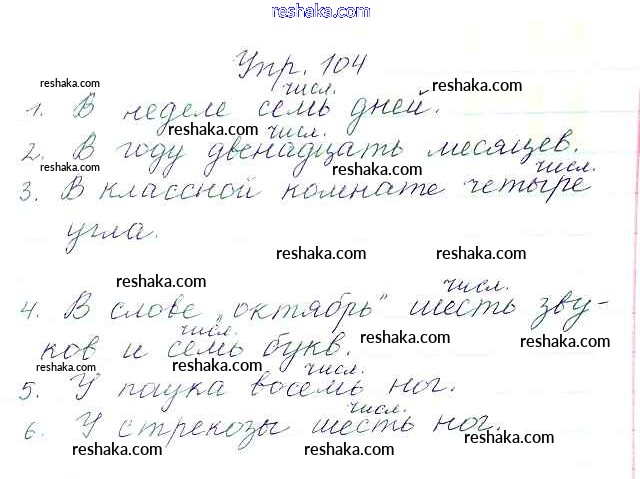 reshaka.com
Упр. 104
reshaka.com числ. reshaka.com
1. В неделе семь дней.
reshaka.com числ.
2. В году двенадцать месяцев.
reshaka.com reshaka.com числ.
3. В классной комнате четыре
угла.
reshaka.com reshaka.com
reshaka.com числ.
4. В слове „октябрь" шесть зву-
числ. reshaka.com reshaka.com
ков и семь букв.
reshaka.com числ.
5. У паука восемь ног.
числ.
6. У стрекозы шесть ног.
reshaka.com
reshaka.com reshaka.com